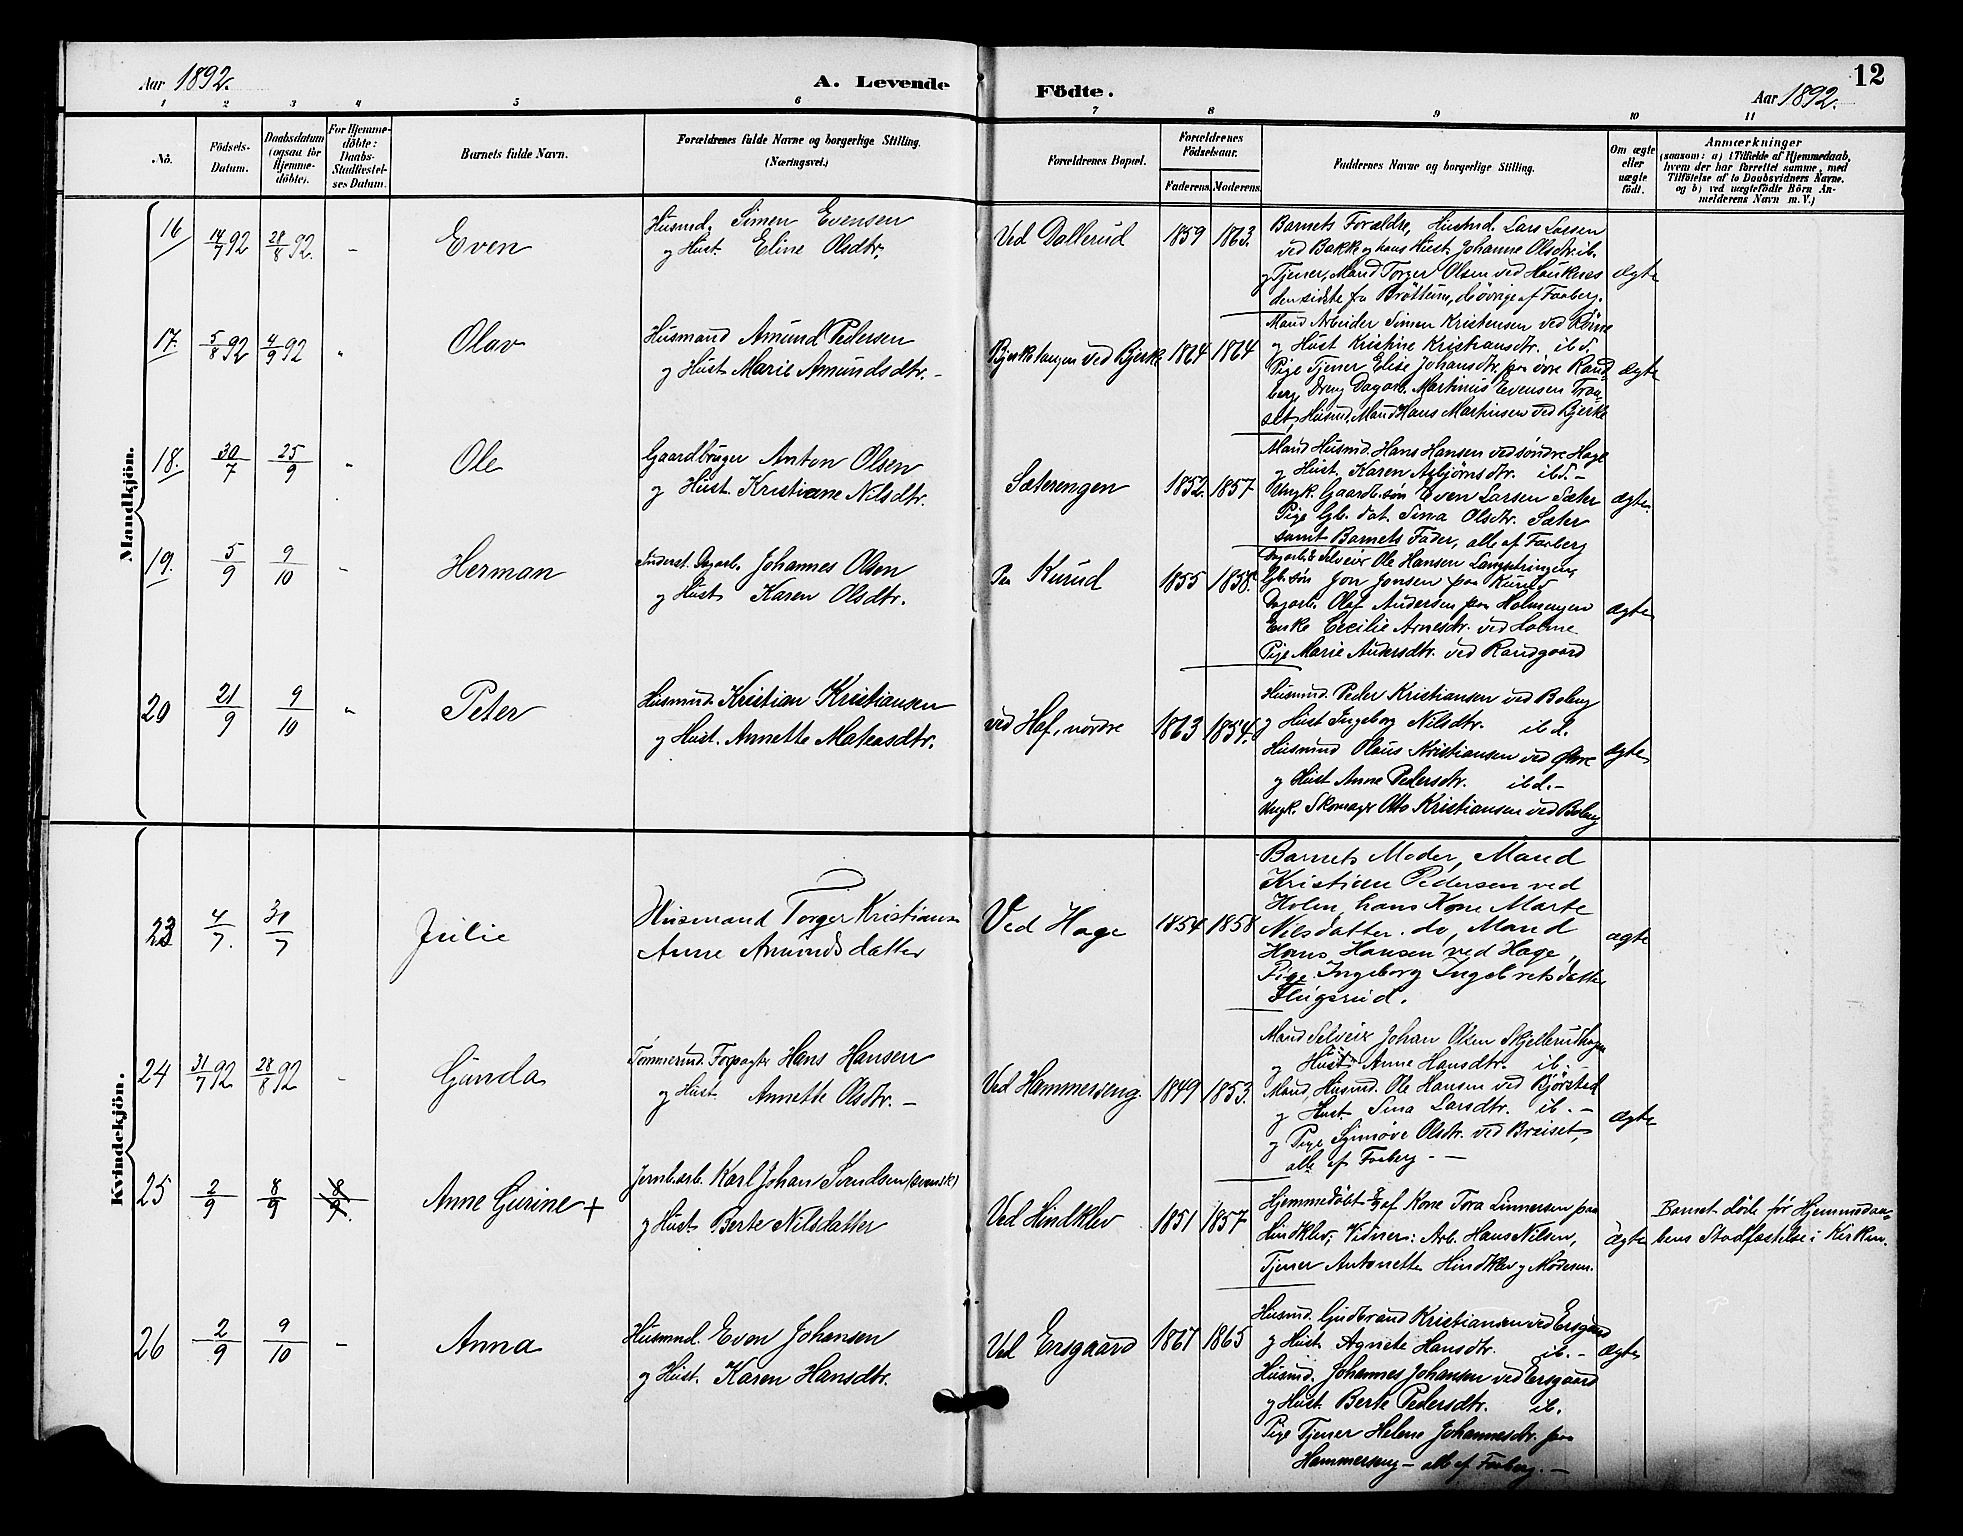 Aar 1892.
A. Levende Födte.
Aar 1892.
12
1 2 3 4 5 6 7 8 9 10 11
No.
Födsels-
Datum.
Daabsdatum
(ogsaa for
Hjemme-
döbte).
For Hjemme-
döbte:
Daabs-
Stadfæstel-
ses Datum.
Barnets fulde Navn.
Forældrenes fulde Navne og borgerlige Stilling.
(Næringsvei.)
Forældrenes Bopæl.
Forældrenes
Födselsaar.
Faderens. Moderens.
Faddernes Navne og borgerlige Stilling.
Om ægte
eller
uægte
født.
Anmærkninger
(saasom: a) i Tilfælde af Hjemmedaab,
hvem der har forrettet samme, med
Tilföielse af to Daabsvidners Navne,
og b) ved uægtefödte Börn An-
melderens Navn m. V.)
Mandkjön.
16 14/7 92 28/8 92. - Even
Husmd. Simen Evensen
og Hust. Eline Olsdtr.
Ved Dallerud 1859 1863.
Barnets Forældre, Husmd. Lars Larsen
ved Bakke og hans Hust. Johanne Olsdtr. ib.
og Tjener, Mand Torger Olsen ved Haukenes
den sidste fra Brøttum, de øvrige af Faaberg.
ægte
17. 5/8 92 4/9 92 " Olav
Husmand Amund Pedersen
og Hust Marie Amundsdtr. -
ved Bjerke 1864 1864
Mand Arbeider Simen Kristensen ved
og Hust Kristine Kristiansdtr. ibd.
Pige Tjener Elise Johansdtr. paa øvre Rand-
berg, Dreng Dagarb. Martinus Evensen
Husmd, Mand Hans Martinsen ved Bjerke
ægte
18. 30/7 25/9 " Ole
Gaardbruger Anton Olsen
og Hust. Kristiane Nilsdtr.
Sæterengen 1852. 1857
Mand Husmd. Hans Hansen ved søndre Hage
og Hust. Karen Asbjørnsdtr. ibd. -
Ungk. Gaardb.søn Even Larsen Sæter
Pige Gb. dat. Sina Olsdtr. Sæter
samt Barnets Fader, alle af Faaberg
ægte
19. 5/9 9/10 - Herman
Inderst. Dagarb. Johannes Olsen
og Hust Karen Olsdtr.
Paa Kurud 1855 1858.
Dagarb. & Selveier Ole Hansen
Gb.søn Jon Jonsen paa Kurud
Dagarb. Olaf Andersen paa Holmengen
Enke Cecilie Arnesdtr. ved Holme
Pige Marie Andersdtr. ved Randgaard
ægte
20 21/9 9/10 " Peter
Husmnd Kristian Kristiansen
og Hust. Annette Mateasdtr.
ved Hof, nordre 1863 1854.
Husmnd. Peder Kristiansen ved Boleng
og Hust Ingeborg Nilsdtr. ibd.
Husmnd Olaus Kristiansen ved
og Hust Anne Pedersdtr. ibd. -
Ungk. Skomager Otto Kristiansen ved Boleng
ægte
Kvindekjön.
23 4/7. 31/7 Julie
Husmand Torger Kristiansen
Anne Amundsdatter
Ved Hage 1854 1858
Barnets Moder, Mand
Kristian Pedersen ved
Holen, hans Kone Marte
Nilsdatter. do, Mand
Hans Hansen ved Hage,
Pige Ingeborg Ingebretsdatter
Flugsrud.
ægte
24 31/7 92 28/8 92 - Gunda
Tømmermd. Forpagter Hans Hansen
og Hust. Annette Olsdtr. -
Ved Hammerseng. 1849 1853.
Mand Selveier Johan Olsen Skjellerudhagen
og Hust. Anne Hansdtr. ib. -
Mand, Husmd. Ole Hansen ved Bjørstad
og Hust. Sina Larsdtr. ib. -
og Pige Synnøve Olsdtr. ved Breiset,
alle af Faaberg - -
ægte
25 2/9 8/9 8/9. Anne Gurine +
Jernb.arb. Karl Johan Svendsen (svensk)
og Hust Berte Nilsdatter
Ved Hindklev 1851 1857
Hjemmedøbt 8/9 af Kone Tora Linnersen paa
Hindklev; Vidner: Arb. Hans Nilsen,
Tjener Antonette Hindklev og Moderen.
ægte
Barnet døde før Hjemmedaa-
bens Stadfæstelse i Kirken.
26 2/9 9/10 - Anna
Husmnd. Even Johansen
og Hust. Karen Hansdtr.
Ved Ensgaard 1867 1865
Husmd. Gudbrand Kristiansen ved Ensgaard
og Hust. Agnete Hansdtr. ib. -
Husmd. Johannes Johansen ved Ensgaard
og Hust Berte Pedersdtr. ib.
Pige Tjener Helene Johannesdtr. paa
Hammerseng - alle af Faaberg. -
ægte